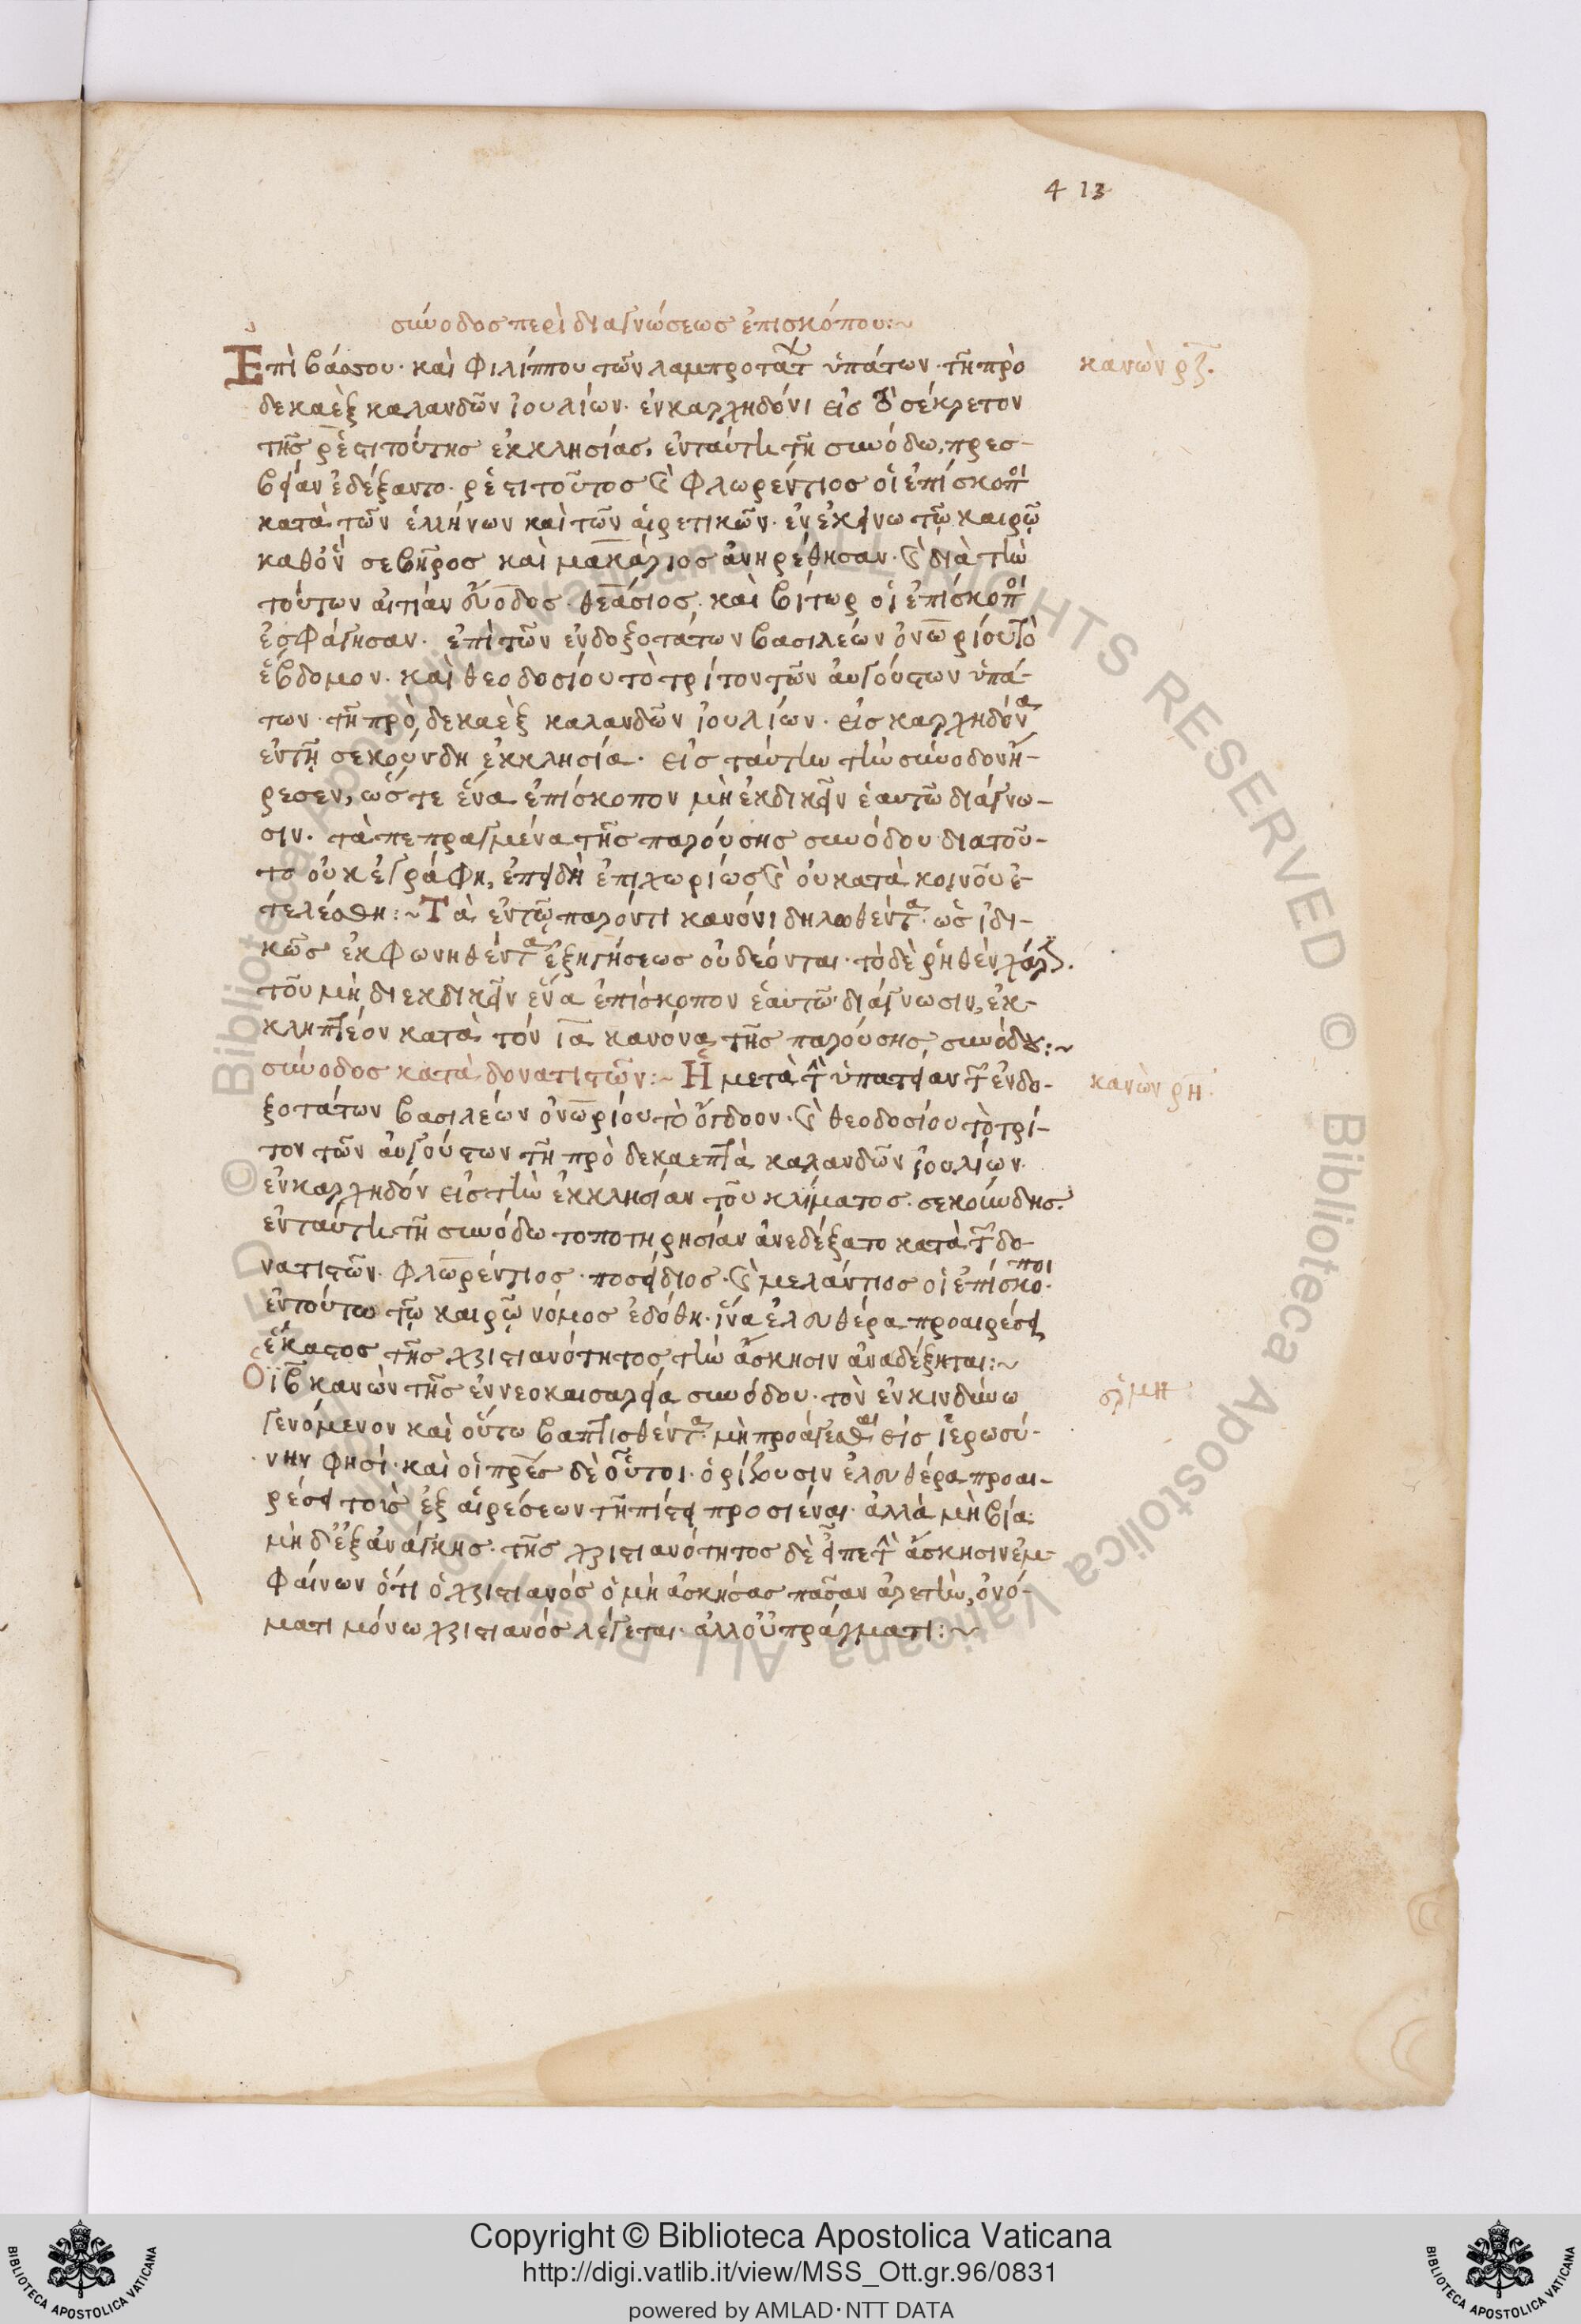 413
σύνοδος περὶ διαγνώσεως ἐπισκόπου:~
Ἐπὶ βάσσου· καὶ Φιλίππου τῶν λαμπροτάτ ὑπάτων· τῆ πρὸ
κανὼν ρζ.
δεκαὲξ καλανδῶν ἰουλίων· ἐν καρχηδόνι εἰς τὸ σέκρετον
τῆς ῥεστιτούτης ἐκκλησίας, ἐν ταύτη τῆ συνόδω, πρεσ-
βείαν ἐδέξαντο· ῥεστιτοῦτος καὶ Φλωρέντιος οἱ ἐπίσκοποι
κατὰ τῶν ἑλλήνων καὶ τῶν αἱρετικῶν· ἐν ἐκείνω τῶ καιρῶ
καθὃν σεβῆρος καὶ μακάριος ἀνηρέθησαν· καὶ διὰ τὴν
τούτων αἰτίαν εὔοδος· θεάσιος· καὶ βίτωρ οἱ ἐπίσκοποι
ἐσφάγησαν· ἐπὶ τῶν ἐνδοξοτάτων βασιλέων ὀνωρίου τὸ
ἕβδομον· καὶ θεοδοσίου τὸ τρίτον τῶν αὐγούστων ὑπά-
των· τῆ πρὸ δεκαὲξ καλανδῶν ἰουλίων· εἰς καρχηδόνα
ἐν τῆ σεκούνδη ἐκκλησία· εἰς ταύτην τὴν σύνοδον ἤ-
ρεσεν, ὥστε ἕνα ἐπίσκοπον μὴ ἐκδικεῖν ἑαυτῶ διάγνω-
σιν· τὰ πεπραγμένα τῆς παρούσης συνόδου διατοῦ-
το οὐκ ἐγράφη, ἐπειδὴ ἐπιχωρίως καὶ οὐ κατὰ κοινοῦ ἐ-
τελέσθη:~ Τὰ ἐν τῶ παρόντι κανόνι δηλωθέντα· ὡς ἰδι-
κῶς ἐκφωνηθέντα ἐξηγήσεως οὐ δέονται· τὸ δὲ ῥηθὲν χάριν.
τοῦ μὴ διεκδικεῖν ἕνα ἐπίσκοπον ἑαυτῶ διάγνωσιν, ἐκ-
κληπτέον κατὰ τόν ια κανόνα τῆς παρούσης συνόδου:~
σύνοδος κατὰ δονατιστῶν:~ Ἡ μετὰ τὴν ὑπατείαν τῶν ἐνδο-
κανὼν ρη.
ξοτάτων βασιλέων ὀνωρίου τὸ ὄγδοον· καὶ θεοδοσίου τὸ τρί-
τον τῶν αὐγούστων τῆ πρὸ δεκαεπτὰ καλανδῶν ἰουλίων·
ἐν καρχηδόν εἰς τὴν ἐκκλησίαν τοῦ κλίματος· σεκούνδης.
ἐν ταύτη τῆ συνόδω τοποτηρησίαν ἀνεδέξατο κατὰ τῶν δο-
νατιστῶν· Φλωρέντιος· ποσείδιος· καὶ μελάντιος οἱ ἐπίσκοποι·
ἐν τούτω τῶ καιρῶ νόμος ἐδόθη· ἵνα ἐλευθέρα προαιρέσει
ἕκαστος τῆς χριστιανότητος τὴν ἄσκησιν ἀναδέξηται:~
Ὁ ιβ κανὼν τῆς ἐν νεοκαισαρεία συνόδου· τὸν ἐν κινδύνω
γενόμενον καὶ οὕτω βαπτισθέντα· μὴ προάγεσθαι εἰς ἱερωσύ-
νην φησί· καὶ οἱ πρες δὲ οὗτοι· ὁρίζουσιν ἐλευθέρα προαι-
ρέσει τοὺς ἐξ αἱρέσεων τῆ πίστει προσιέναι· ἀλλὰ μὴ βία·
μὴδ' ἐξανάγκης· τῆς χριστιανότητος δὲ εἶπε τὴν ἄσκησιν ἐμ-
φαίνων ὅτι ὁ χριστιανός ὁ μὴ ἀσκήσας πᾶσαν ἀρετὴν, ὀνό-
ματι μόνω χριστιανός λέγεται· ἀλλοὐ πράγματι:~
Copyright © Biblioteca Apostolica Vaticana
http://digi.vatlib.it/view/MSS_Ott.gr.96/0831
powered by AMLAD·NTT DATA
BIBLIOTECA APOSTOLICA VATICANA
BIBLIOTECA APOSTOLICA VATICANA
© Biblioteca Apostolica Vaticana ALL RIGHTS RESERVED